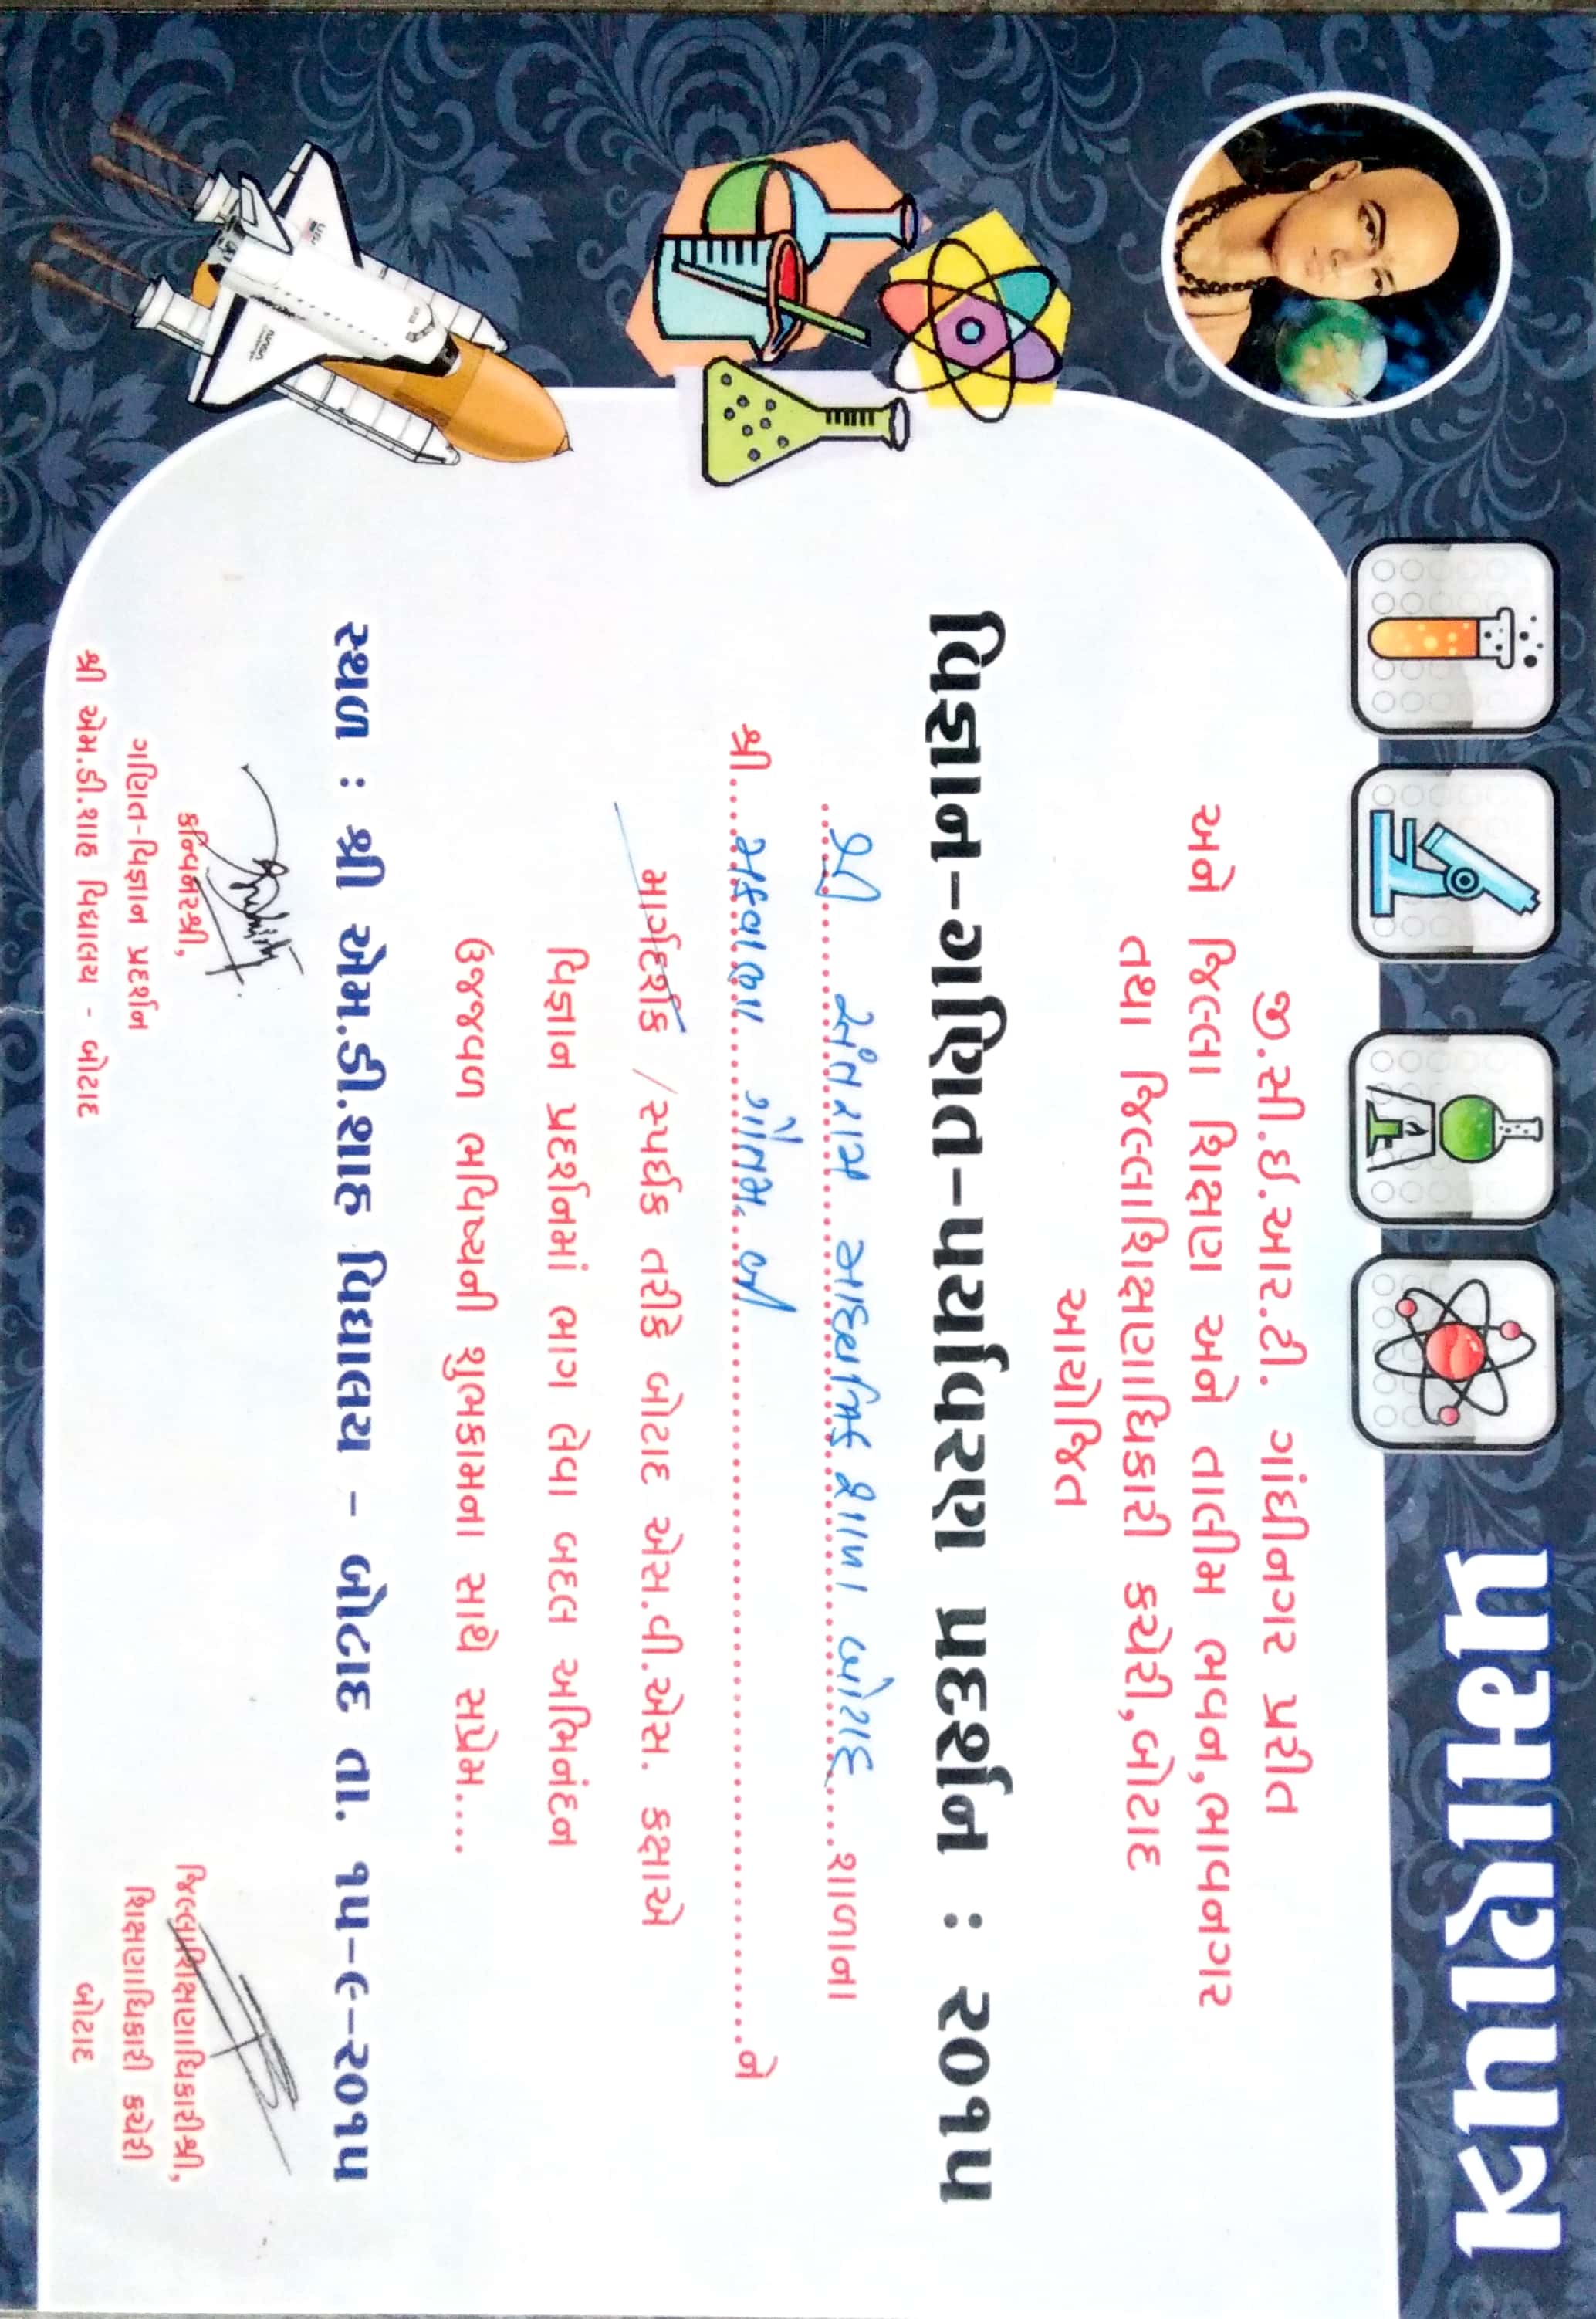 પ્રમાણપત્ર
જી.સી.ઇ.આર.ટી. ગાંધીનગર પ્રરીત
અને જિલ્લા શિક્ષણ અને તાલીમ ભવન,ભાવનગર
તથા જિલ્લાશિક્ષણાધિકારી કચેરી,બોટાદ
આયોજિત
વિજ્ઞાન-ગણિત-પર્યાવરણ પ્રદર્શન : ૨૦૧૫
શ્રી સંતરામ માધ્યમિક શાળા બોટાદ શાળાના
શ્રી....મકવાણા ગૌતમ. બી.....ને
માર્ગદર્શક /સ્પર્ધક તરીકે બોટાદ એસ.વી.એસ. કક્ષાએ
વિજ્ઞાન પ્રદર્શનમાં ભાગ લેવા બદલ અભિનંદન
ઉજજવળ ભવિષ્યની શુભકામના સાથે સપ્રેમ....
સ્થળ : શ્રી એમ.ડી.શાહ વિદ્યાલય - બોટાદ તા. ૧૫-૯-૨૦૧૫
કન્વિનરશ્રી,
ગણિત-વિજ્ઞાન પ્રદર્શન
શ્રી એમ.ડી.શાહ વિદ્યાલય - બોટાદ
જિલ્લાશિક્ષણાધિકારીશ્રી,
શિક્ષણાધિકારી કચેરી
બોટાદ